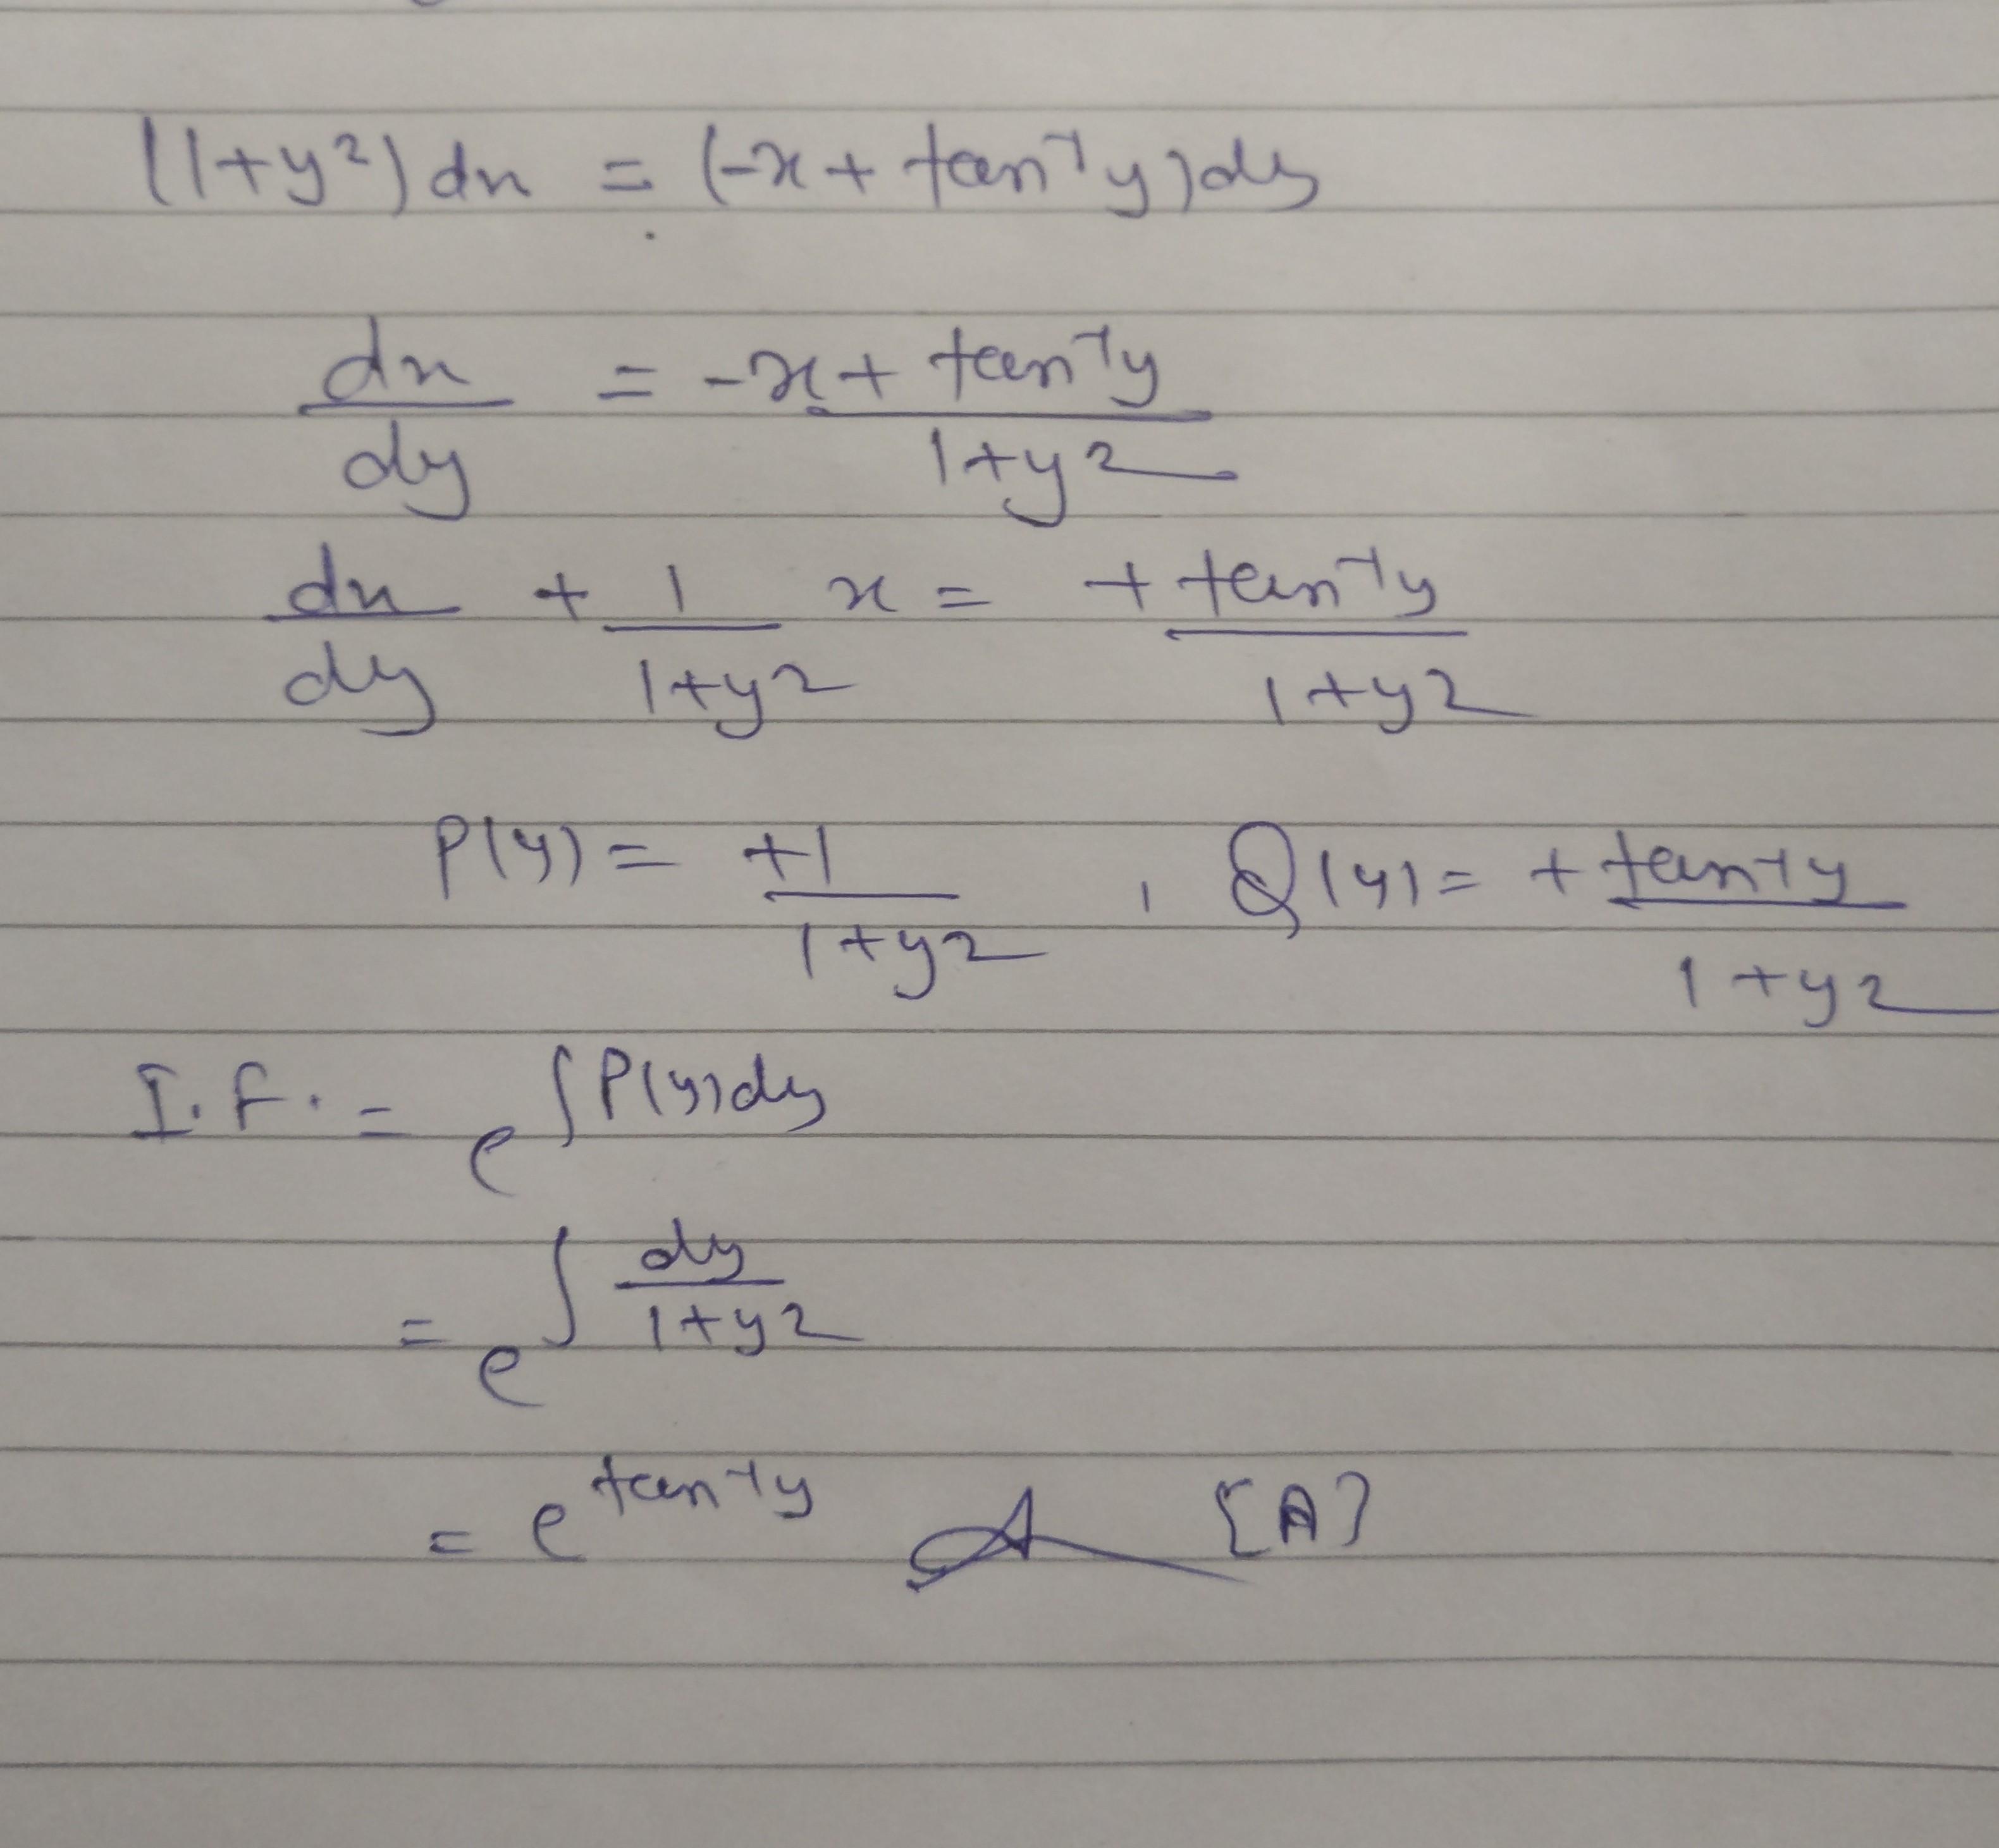 (1+y²)dx = (-x + tan⁻¹y)dy
dx/dy = -x + tan⁻¹y/1+y²
dx/dy + 1/1+y² x = + tan⁻¹y/1+y²
P(y) = +1/1+y² , Q(y) = + tan⁻¹y/1+y²
I.F. = e^∫P(y)dy
= e^∫dy/1+y²
= e^tan⁻¹y [A]